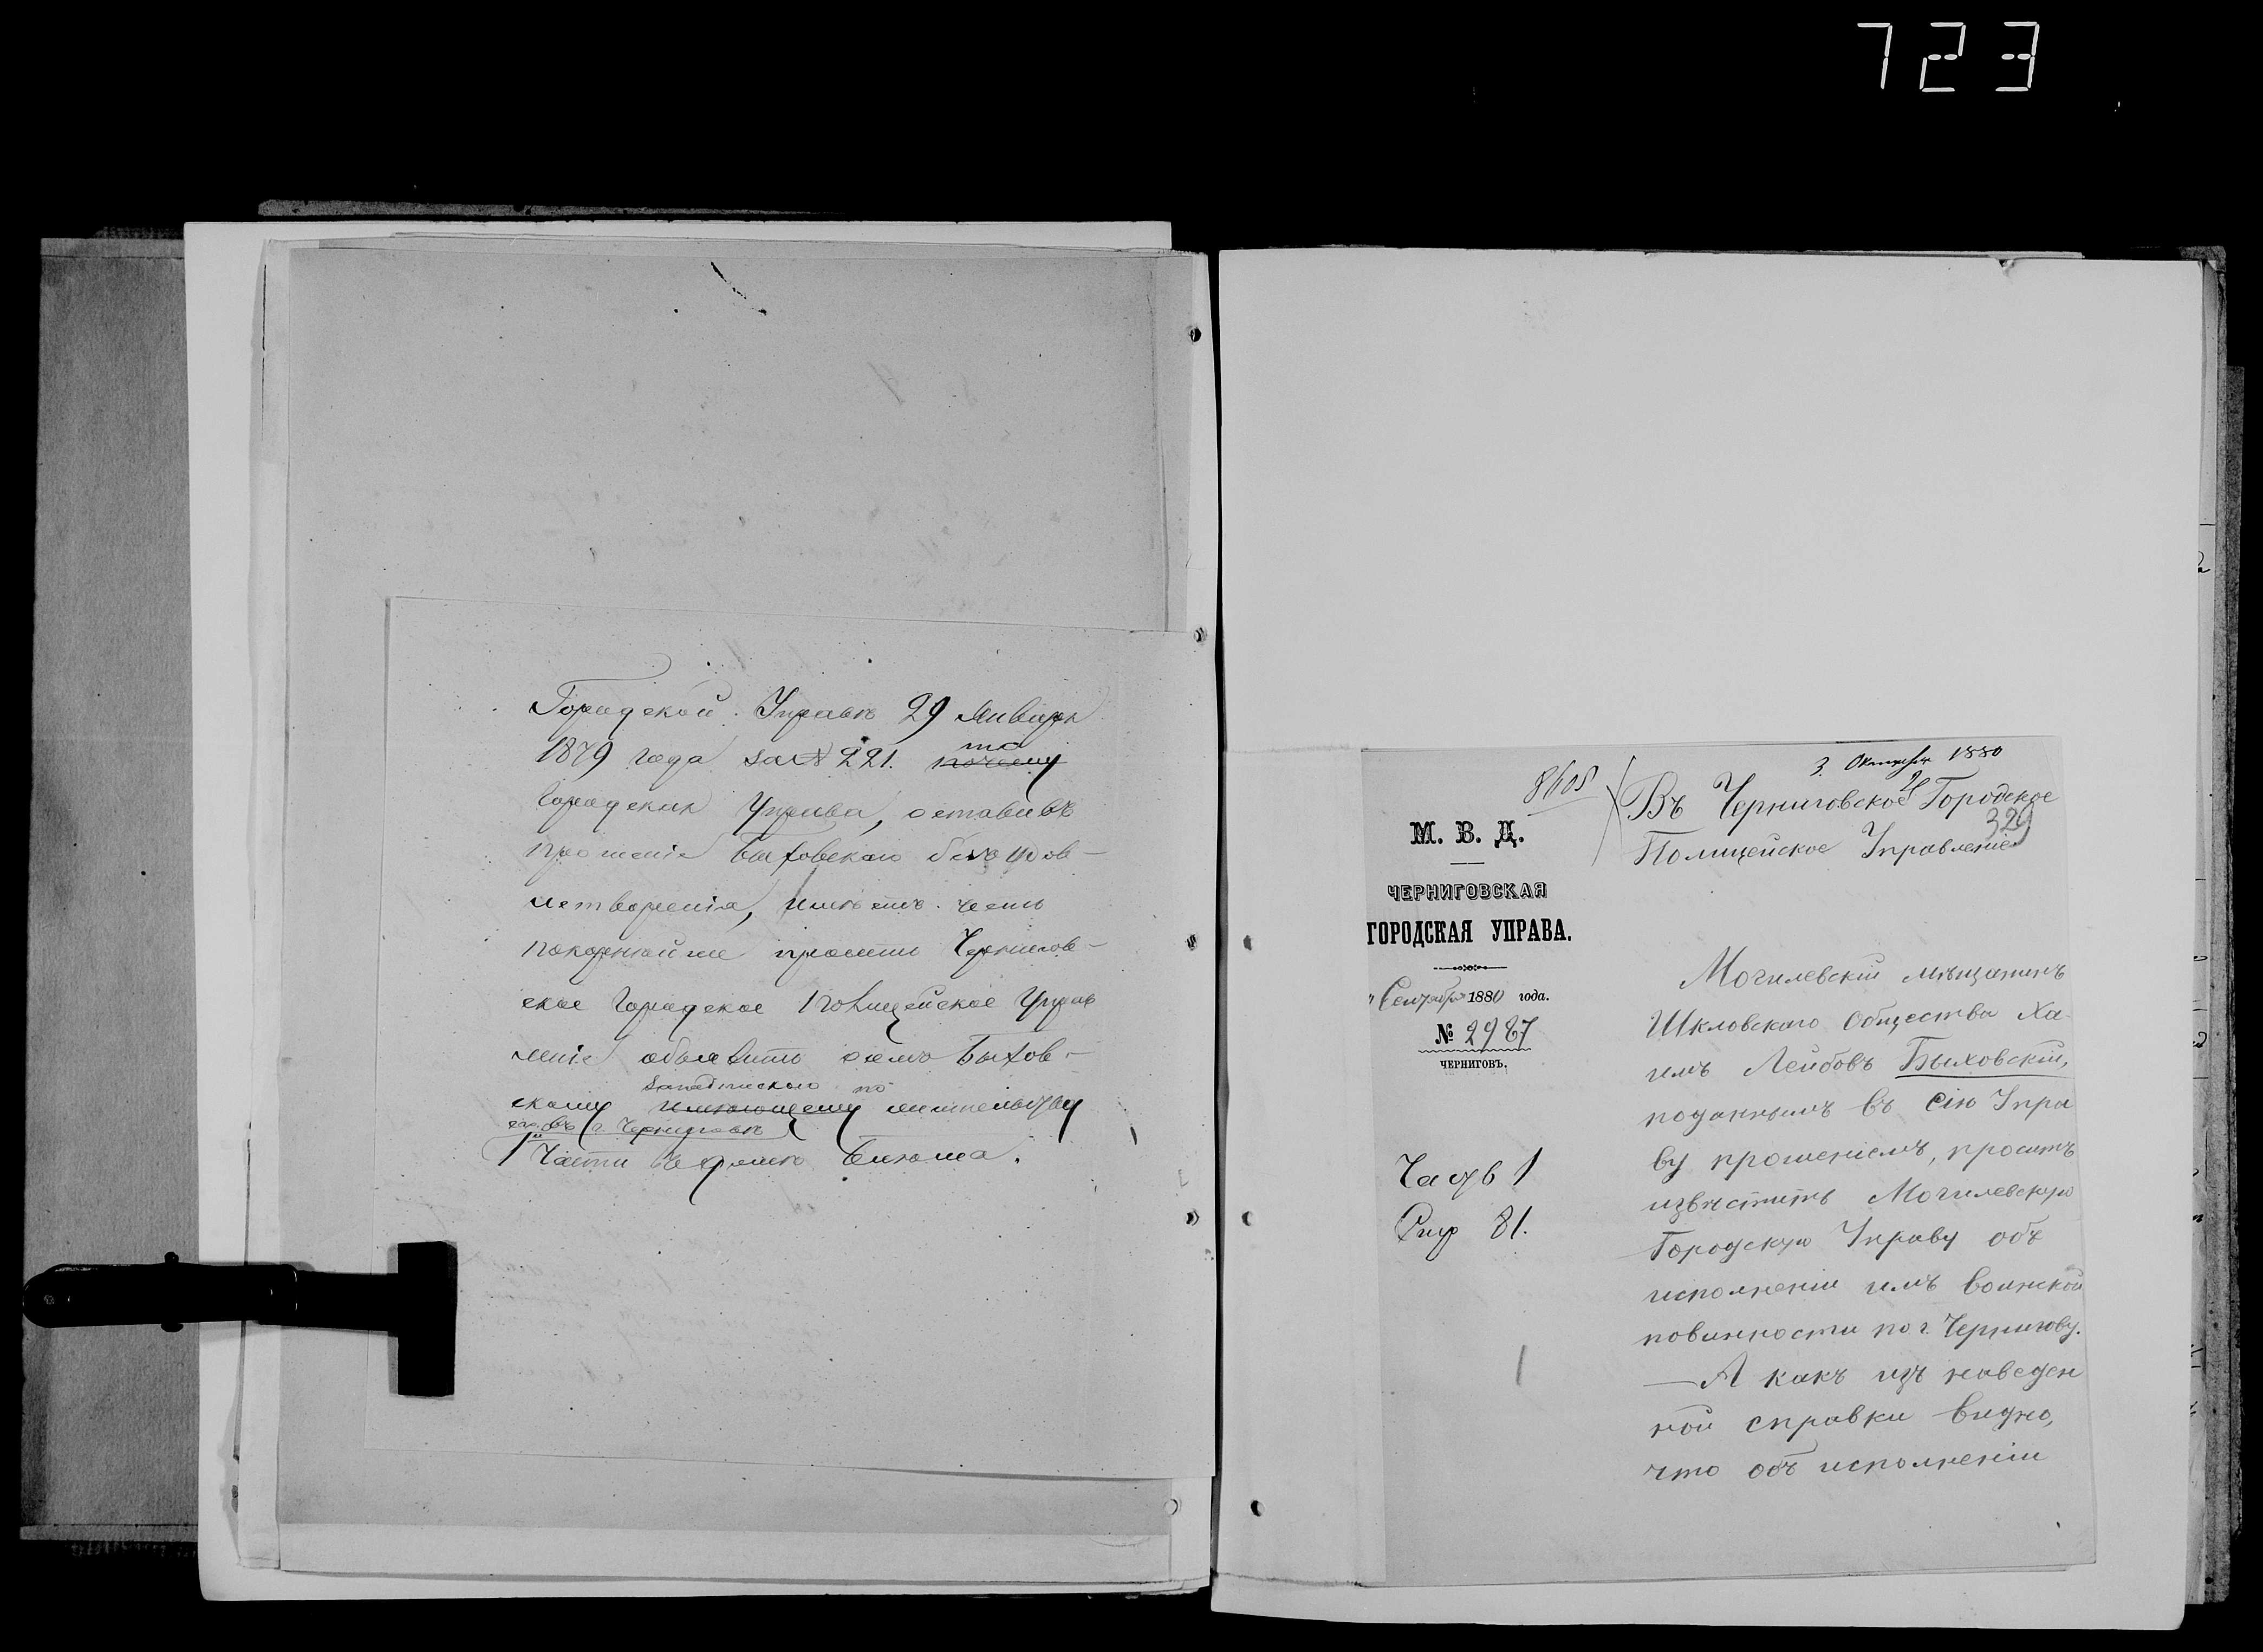 723
Городской Управѣ 29 Января
1879 года за № 221. почему то
Городская Управа, оставивъ
прошеніе Быховскаго безъ удов-
летворенія, имѣетъ честь
покорнѣйше просить Чернигов-
ское Городское Полицейское Управ
леніе объявить о семъ Быхов-
скому имѣющему жительству
1й Части въ домѣ
3 Октября 1880
8608
Въ Черниговское Городское
329
Полицейское Управленіе
М. В. Д.
ЧЕРНИГОВСКАЯ
ГОРОДСКАЯ УПРАВА.
" Сентября 1880 года.
№ 2987
ЧЕРНИГОВЪ.
Часть 1
81.
Могилевскій мѣщанинъ
Шкловскаго Общества Ха-
имъ Лейбовъ Быховскій,
поданнымъ въ сію Упра
ву прошеніемъ, проситъ
извѣстить Могилевскую
Городскую Управу объ
исполненіи имъ воинской
повинности по г. Чернигову.
— А какъ изъ наведен
ной справки видно,
что объ исполненіи